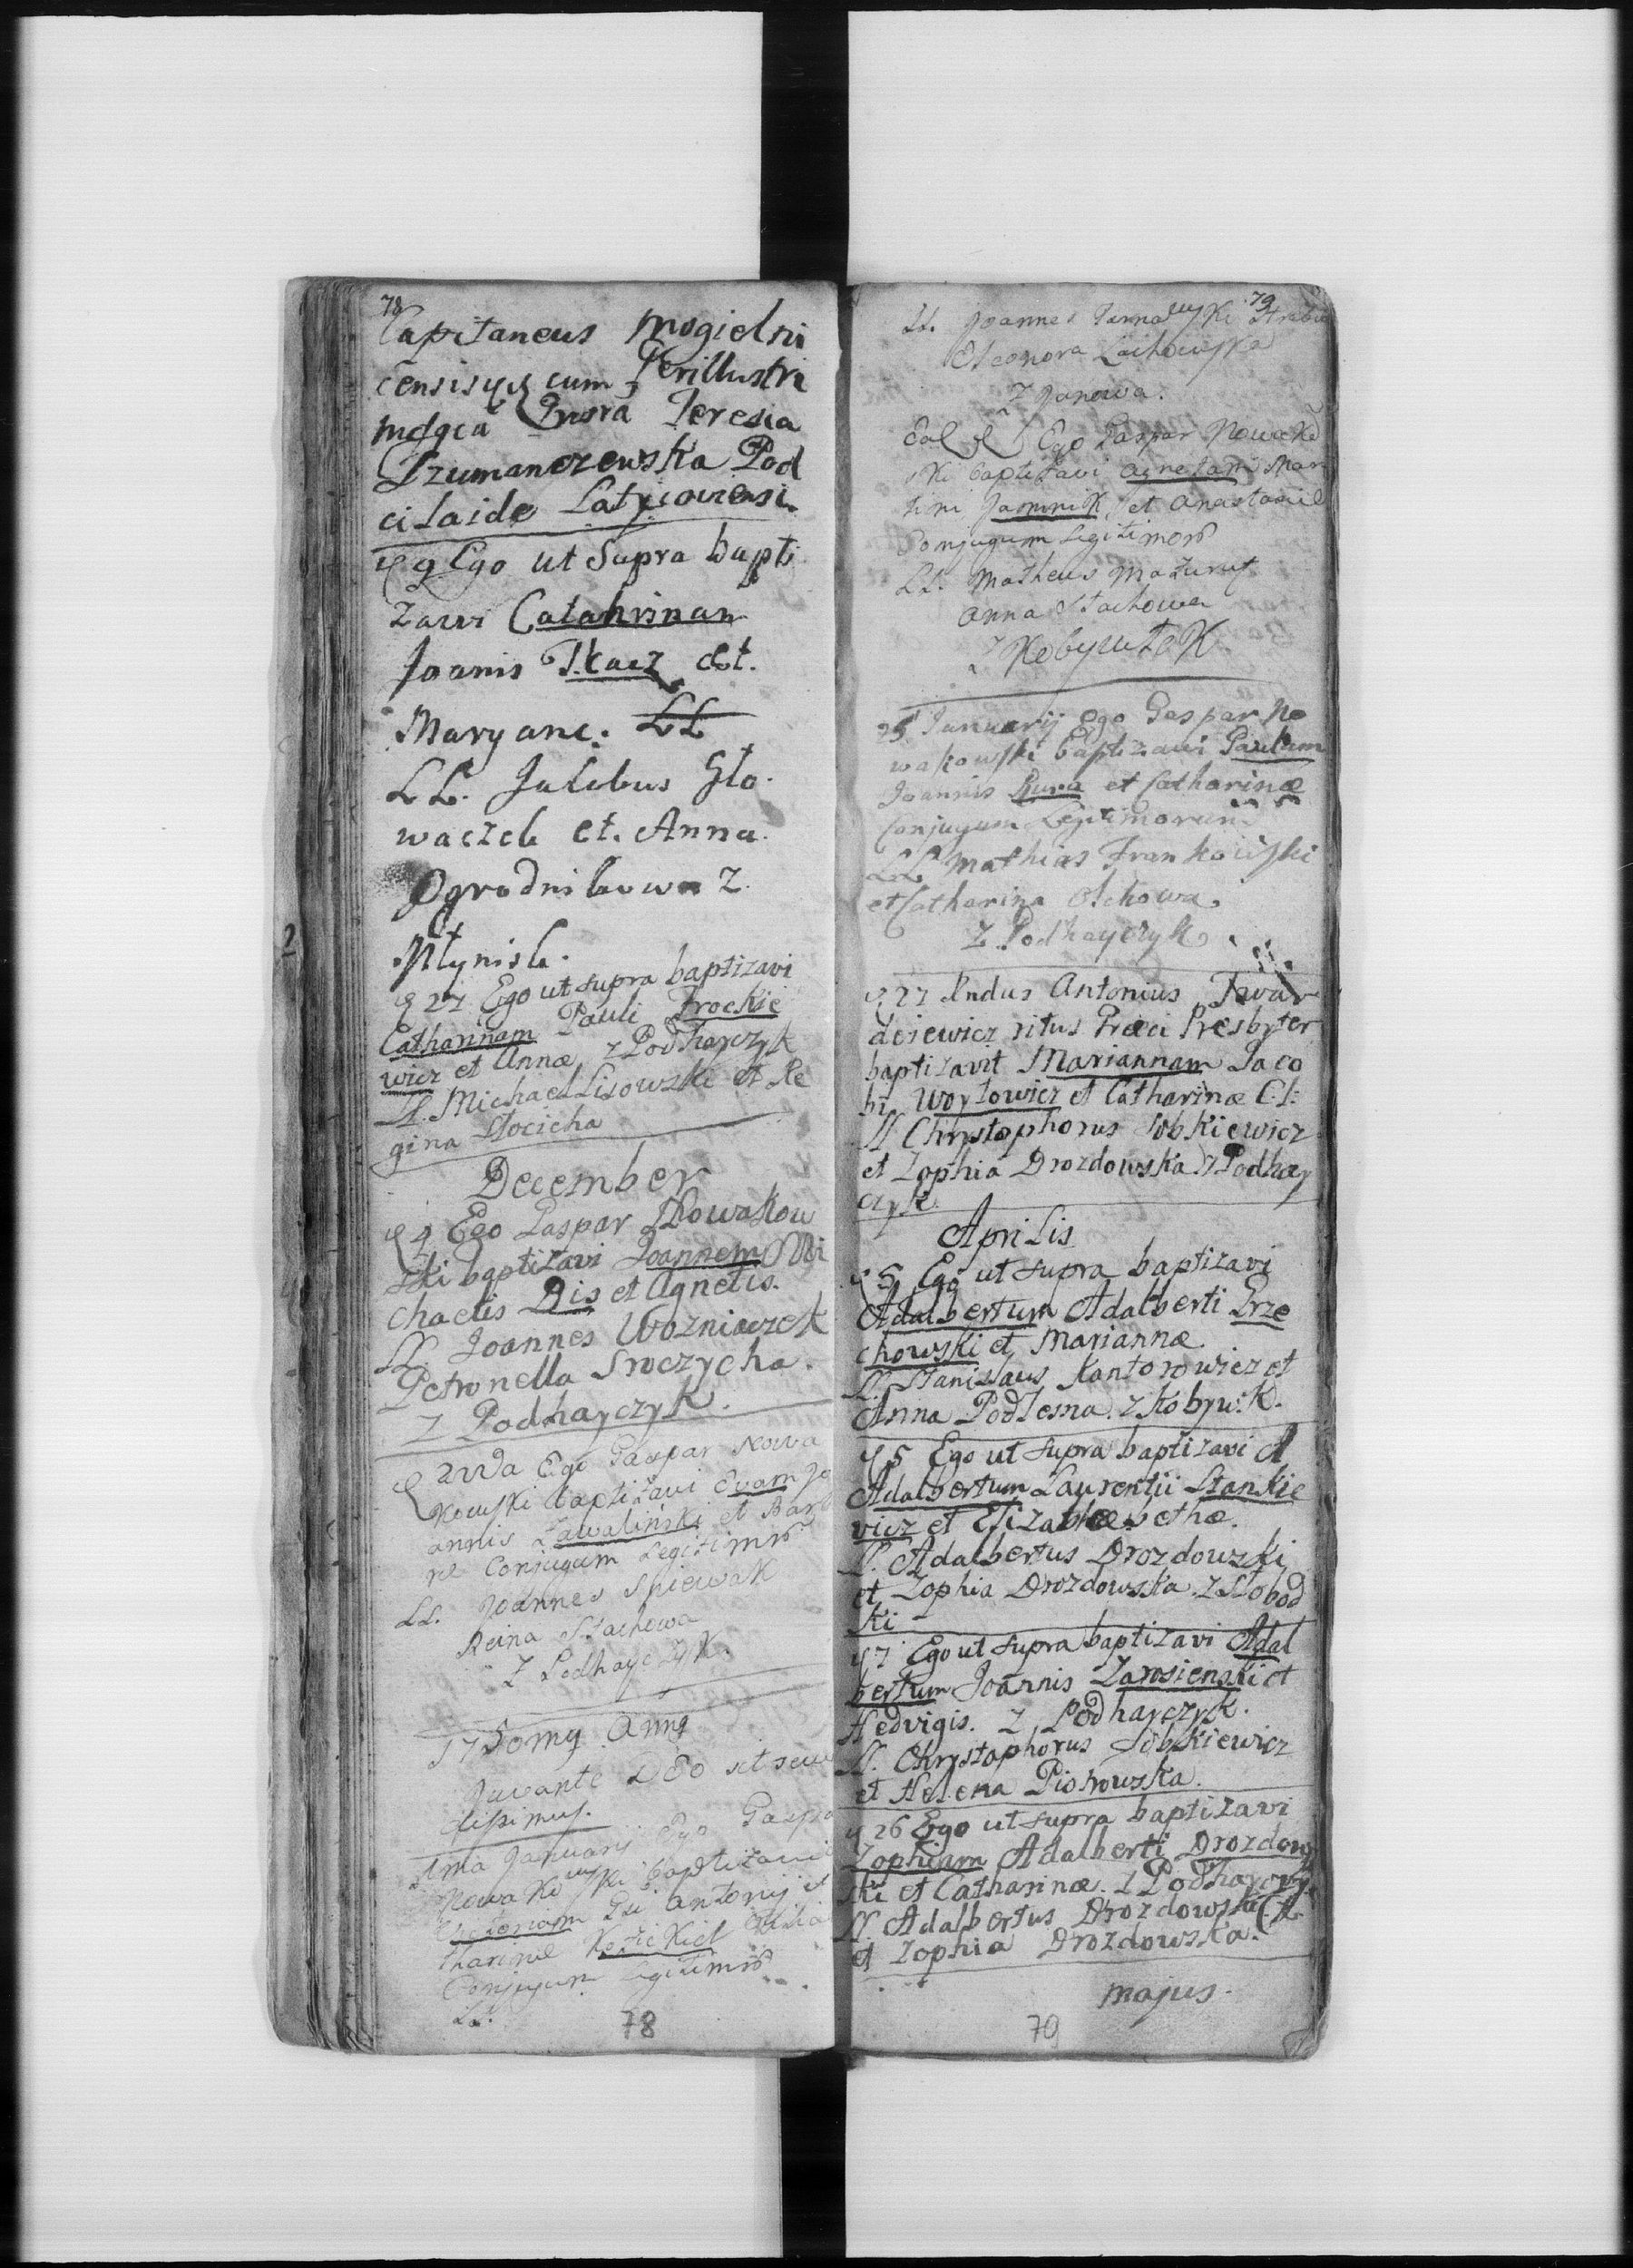 78
Capitaneus Mogielni
censisq cum Perillustri
Mdgca Gnora Teresia
Szumanczewska Pod
cilaide Latyczovensi.
9 Ego ut Supra bapti
zavi Catahrinam
Joanis Tkacz et.
Maryane. LL
LL. Jakobus Gło
waczek et. Anna
Ogrodnikowa z
Młynisk.
27 Ego ut supra baptizavi
Catharinam Pauli Trockie
wicz et Annæ z Podhayczyk
LL. Michael Lisowski et Re
gina Stocicha
December
4 Ego Gaspar Nowakow
ski baptizavi Joannem Mi
chaelis Dis et Agnetis.
LL. Joannes Wozniaczek
Petronella Sroczycha.
z Podhayczyk.
22da Ego Gaspar Nowa
kowski baptizavi Evam Jo
annis Zawaliński et Barb
ræ Conjugum Legitimor
LL. Joannes Spiewak
Reina Stachowa
z Podhayczyk.
1750mq Annq
Juvante DEO
1ma Januarij Ego Gaspa
Nowakowski baptizavi
Antonij et
tharinæ
Conjugum Legitimor
LL.
78
79
LL. Joannes Tarnawski
Eleonora Lachowska
z Janowa.
Ego Gaspar Nowako
ski baptizavi Agnetam Mar
tini Jasminik et Anastasiæ
Conjugum Legitimor
LL. Matheus Mazurus
Anna Stachowa
z Kobywłok
25 Januarij Ego Gaspar No
wakowski baptizavi Paulum
Joannis Rura et Catharinæ
Conjugum Legitimorum
LL Mathias Frankowski
et Catharina Olchowa.
z Podhayczyk
27 Rndus Antonius Twar
dziewicz ritus Græci Presbyter
baptizavit Mariannam Jaco
bi Woytowicz et Catharinæ C:L:
LL Chrystophorus Sobkiewicz
et Zophia Drozdowska z Podhay
czyk.
Aprilis
5 Ego ut supra baptizavi
Adalbertum Adalberti Grze
chowski et Mariannæ
LL. Stanislaus Kantorowicz et
Anna Podlesna. z Kobyw:k.
5 Ego ut supra baptizavi A
Adalbertum Laurentii Stankie
vicz et Elizabethæ.
LL. Adalbertus Drozdowski
et Zophia Drozdowska z Słobod
ki
7 Ego ut supra baptizavi Adal
bertum Joannis Zarosienski et
Hedvigis. z Podhayczyk.
LL. Chrystophorus Sobkiewicz
et Helena Piotrowska.
26 Ergo ut supra baptizavi
Zophiam Adalberti Drozdow
ski et Catharinæ. z Podhayczy
LL. Adalbertus Drozdowski (k.
et Zophia Drozdowska.
Majus.
79